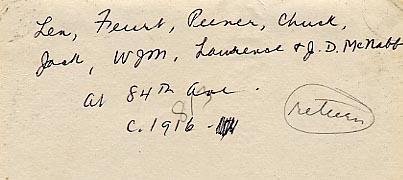 Len, Feurt, Peener, Chuck,
Jack, WJM, Laurence & J.D. McNabb
at 84th Ave.
8/3
c. 1916 -
return